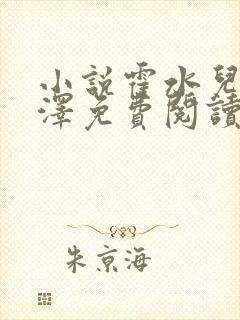 小說霍水兒
澤免費閱讀
朱京海